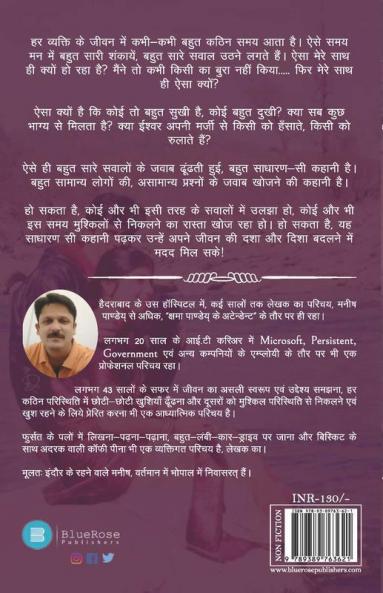 हर व्यक्ति के जीवन में कभी–कभी बहुत कठिन समय आता है। ऐसे समय
मन में बहुत सारी शंकायें, बहुत सारे सवाल उठने लगते हैं। ऐसा मेरे साथ
ही क्यों हो रहा है? मैंने तो कभी किसी का बुरा नहीं किया..... फिर मेरे साथ
ही ऐसा क्यों?
ऐसा क्यों है कि कोई तो बहुत सुखी है, कोई बहुत दुखी? क्या सब कुछ
भाग्य से मिलता है? क्या ईश्वर अपनी मर्जी से किसी को हँसाते, किसी को
रुलाते हैं?
ऐसे ही बहुत सारे सवालों के जवाब ढूंढती हुई, बहुत साधारण–सी कहानी है।
बहुत सामान्य लोगों की, असामान्य प्रश्नों के जवाब खोजने की कहानी है।
हो सकता है, कोई और भी इसी तरह के सवालों में उलझा हो, कोई और भी
इस समय मुश्किलों से निकलने का रास्ता खोज रहा हो। हो सकता है, यह
साधारण सी कहानी पढ़कर उन्हें अपने जीवन की दशा और दिशा बदलने में
मदद मिल सके!
हैदराबाद के उस हॉस्पिटल में, कई सालों तक लेखक का परिचय, मनीष
पाण्डेय् से अधिक, "क्षमा पाण्डेय् के अटेन्डेन्ट" के तौर पर ही रहा।
लगभग 20 साल के आई.टी करिअर में Microsoft, Persistent,
Government एवं अन्य कम्पनियों के एम्प्लोयी के तौर पर भी एक
प्रोफेशनल परिचय रहा।
लगभग 43 सालों के सफर में जीवन का असली स्वरूप एवं उद्देश्य समझना, हर
कठिन परिस्थिति में छोटी–छोटी खुशियाँ ढूँढना और दूसरों को मुश्किल परिस्थिति से निकलने एवं
खुश रहने के लिये प्रेरित करना भी एक आध्यात्मिक परिचय है।
फुर्सत के पलों में लिखना–पढना–पढ़ाना, बहुत–लंबी–कार–ड्राइव पर जाना और बिस्किट के
साथ अदरक वाली कॉफी पीना भी एक व्यक्तिगत परिचय है, लेखक का।
मूलतः इंदौर के रहने वाले मनीष, वर्तमान में भोपाल में निवासरत् हैं।
INR-130/-
NON FICTION
ISBN 978-93-89763-62-1
9 789389 763621
B
BlueRose
Publishers
www.bluerosepublishers.com